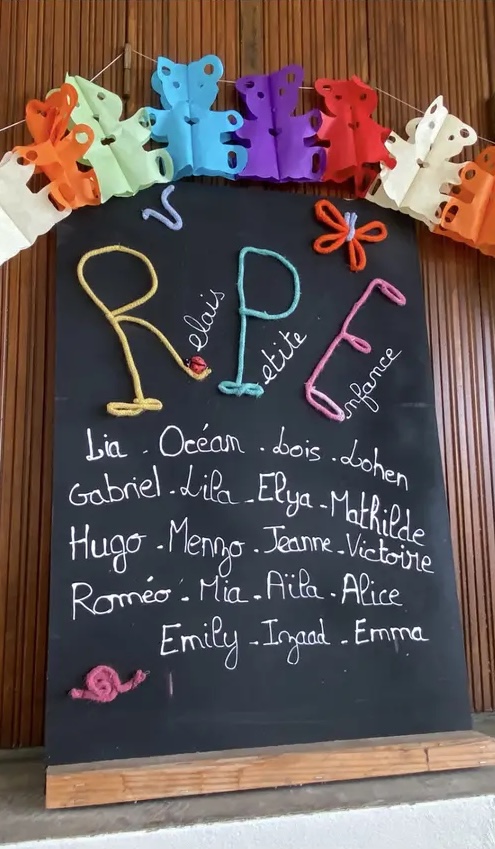 Relais Petite Enfance
Lia . Océan . Loïs . Lohen
Gabriel . Lila . Elya . Mathilde
Hugo . Menzo . Jeanne . Victoire
Roméo . Mia . Aïla . Alice
Emily . Izaad . Emma